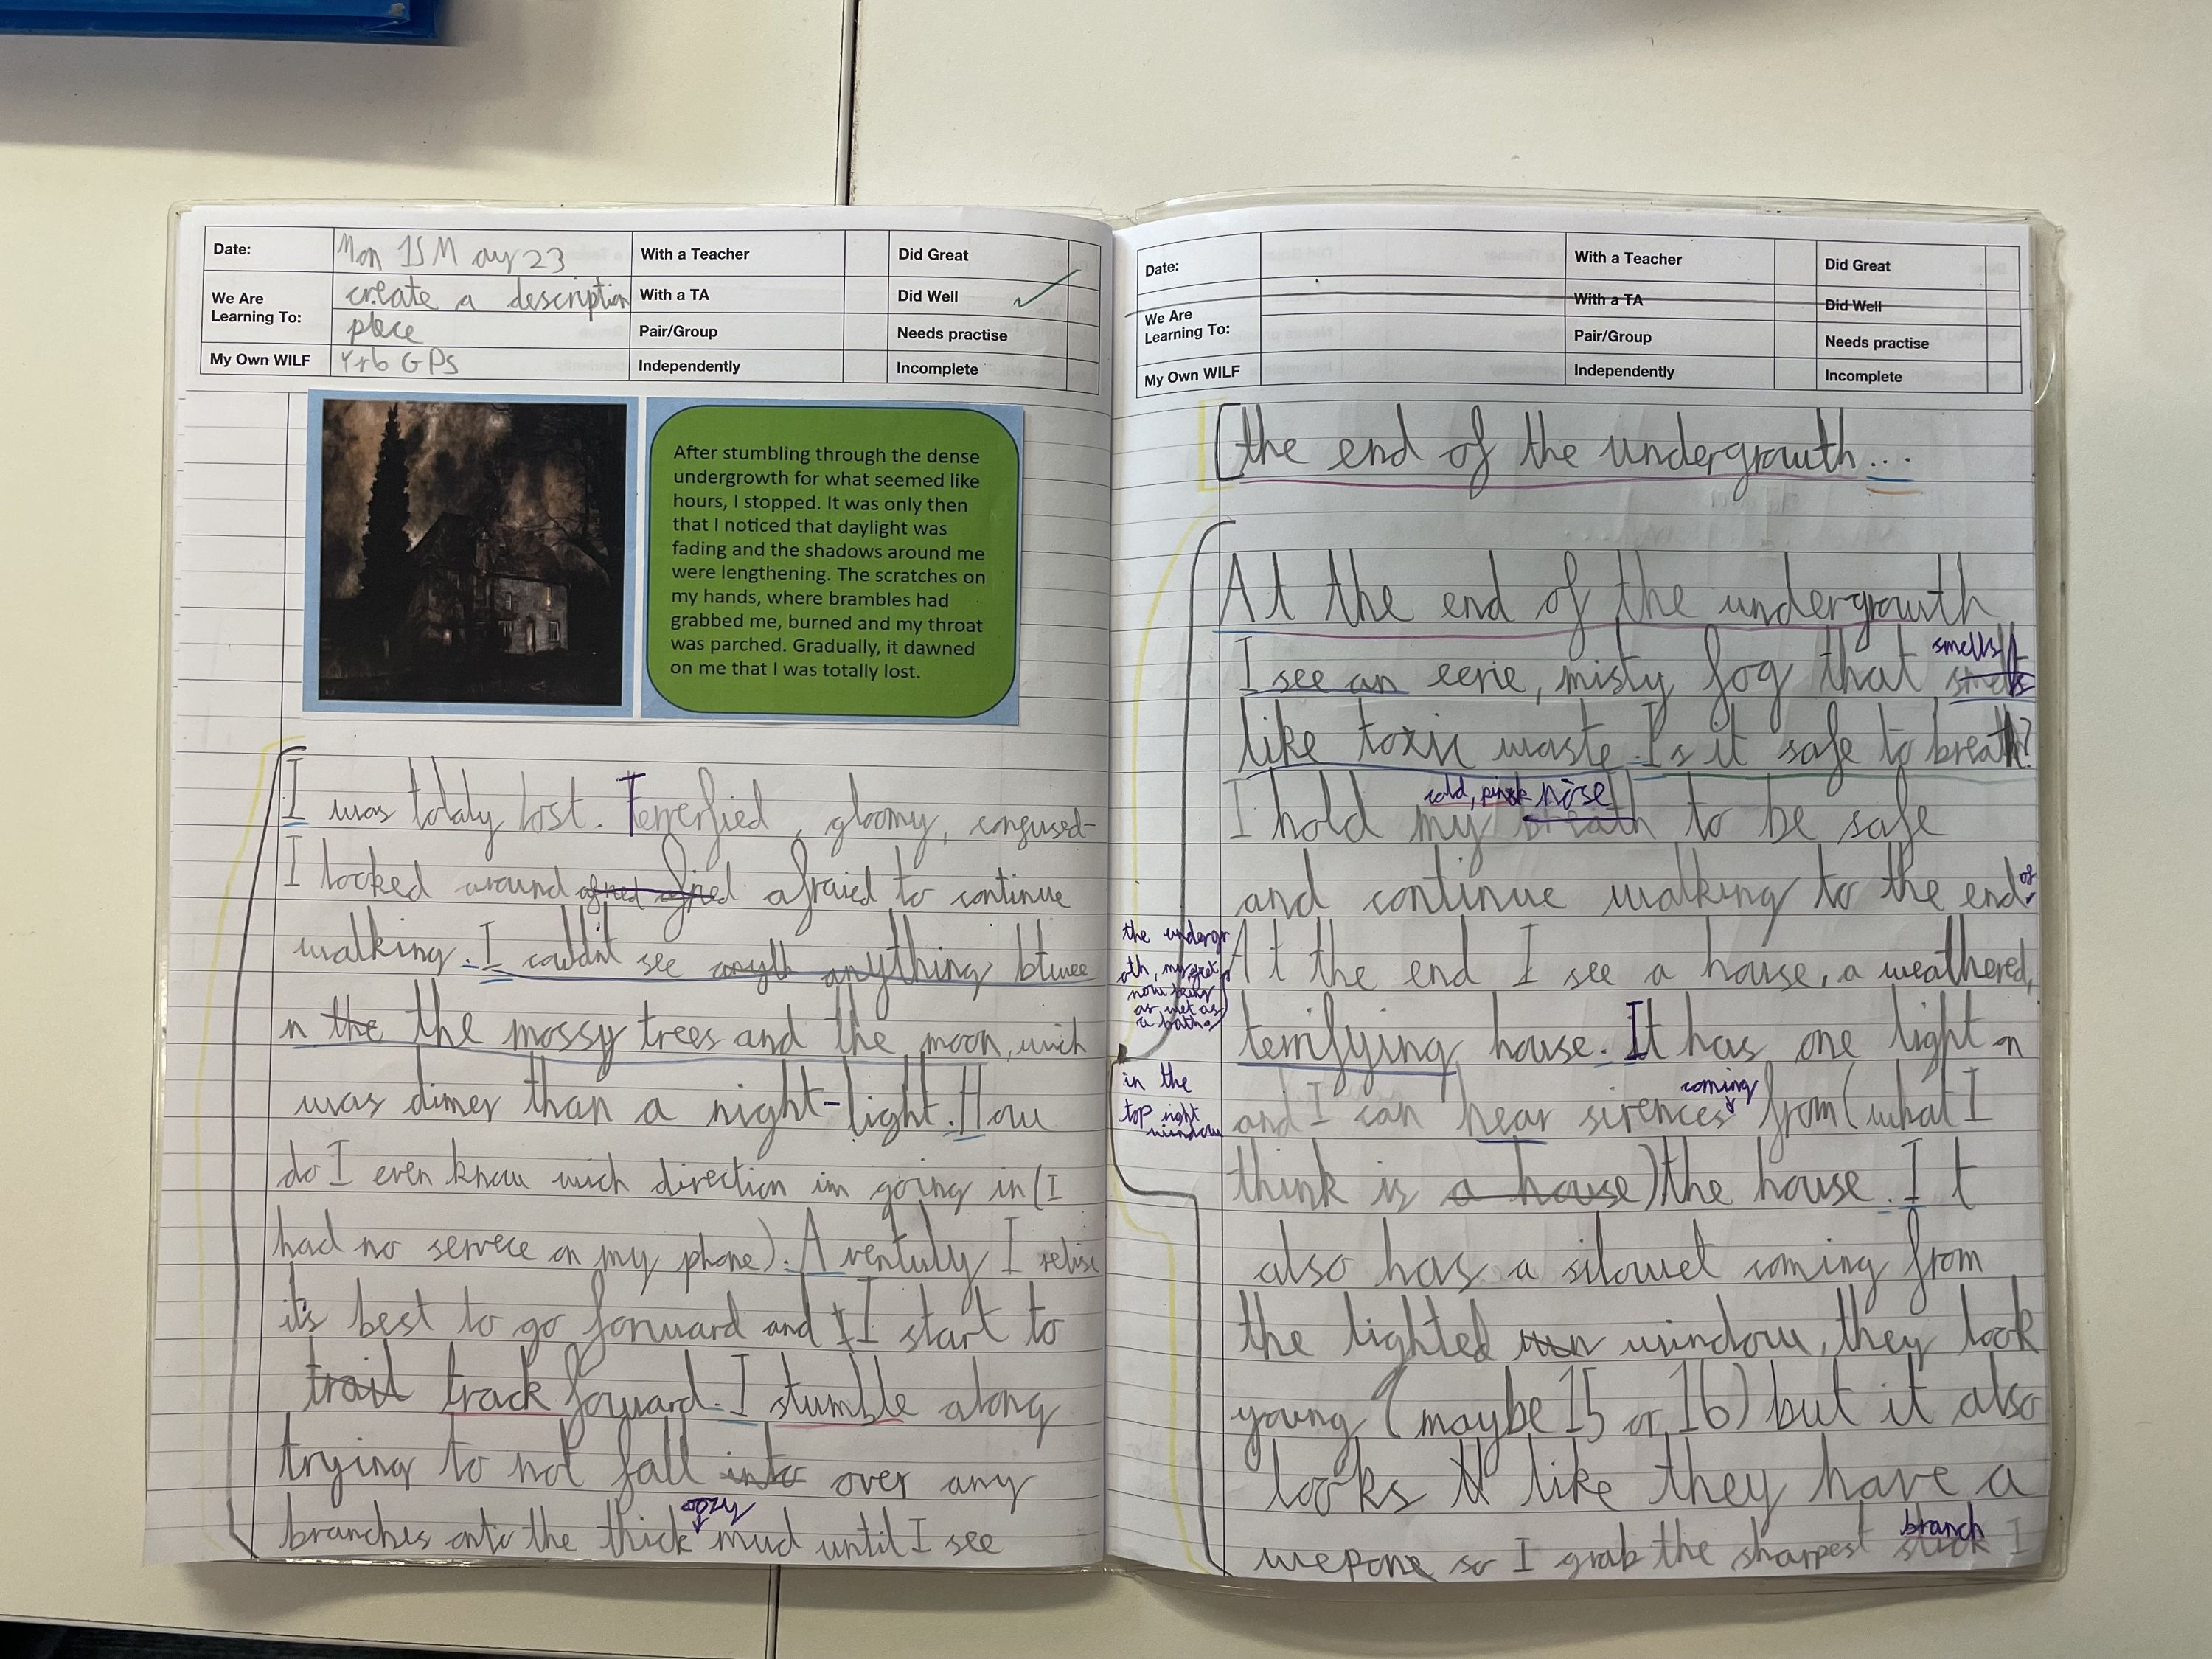 Date:
Mon 15 May 23
With a Teacher
Did Great
We Are
Learning To:
create a description
With a TA
Did Well
place
Pair/Group
Needs practise
My Own WILF
Yr6 GPS
Independently
Incomplete
After stumbling through the dense
undergrowth for what seemed like
hours, I stopped. It was only then
that I noticed that daylight was
fading and the shadows around me
were lengthening. The scratches on
my hands, where brambles had
grabbed me, burned and my throat
was parched. Gradually, it dawned
on me that I was totally lost.
I was totaly lost. Terrerfied, gloomy, congused-
I looked around afraied to continue
walking. I couldn't see anything btwee
n the the mossy trees and the moon, wich
was dimer than a night-light. How
do I even know wich direction im going in (I
had no servece on my phone). Aventuly I relise
it's best to go forward and I start to
trail track forward. I stumble along
trying to not fall into over any
oozy
branches onto the thick mud until I see
Date:
With a Teacher
Did Great
We Are
Learning To:
With a TA
Did Well
Pair/Group
Needs practise
My Own WILF
Independently
Incomplete
the end of the undergrowth...
At the end of the undergrowth
smells
I see an eerie, misty fog that
like toxic waste. Is it safe to breath?
cold, pink nose
I hold my breath to be safe
and continue walking to the end of
the undergr
oth, my feet
now being
as wet as
a bath.
At the end I see a house, a weathered,
terrifying house. It has one light on
in the
top right
window
coming
and I can hear sirences from (what I
think is a house) the house. It
also has a silowet coming from
the lighted window, they look
young (maybe 15 or 16) but it also
looks like they have a
branch
wepone so I grab the sharpest stick I